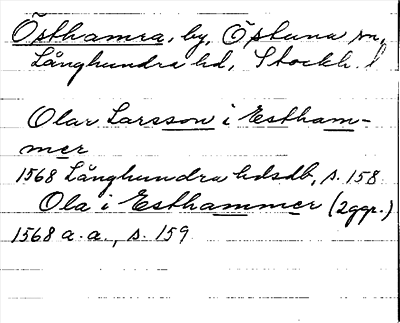 Östhamra, by, Östuna sn,
Långhundra hd, Stockh. l
Olav Larsson i Estham-
mer
1568 Långhundra hdsdb, s. 158
Ola i Esthammer (2ggr.)
1568 a. a., s. 159